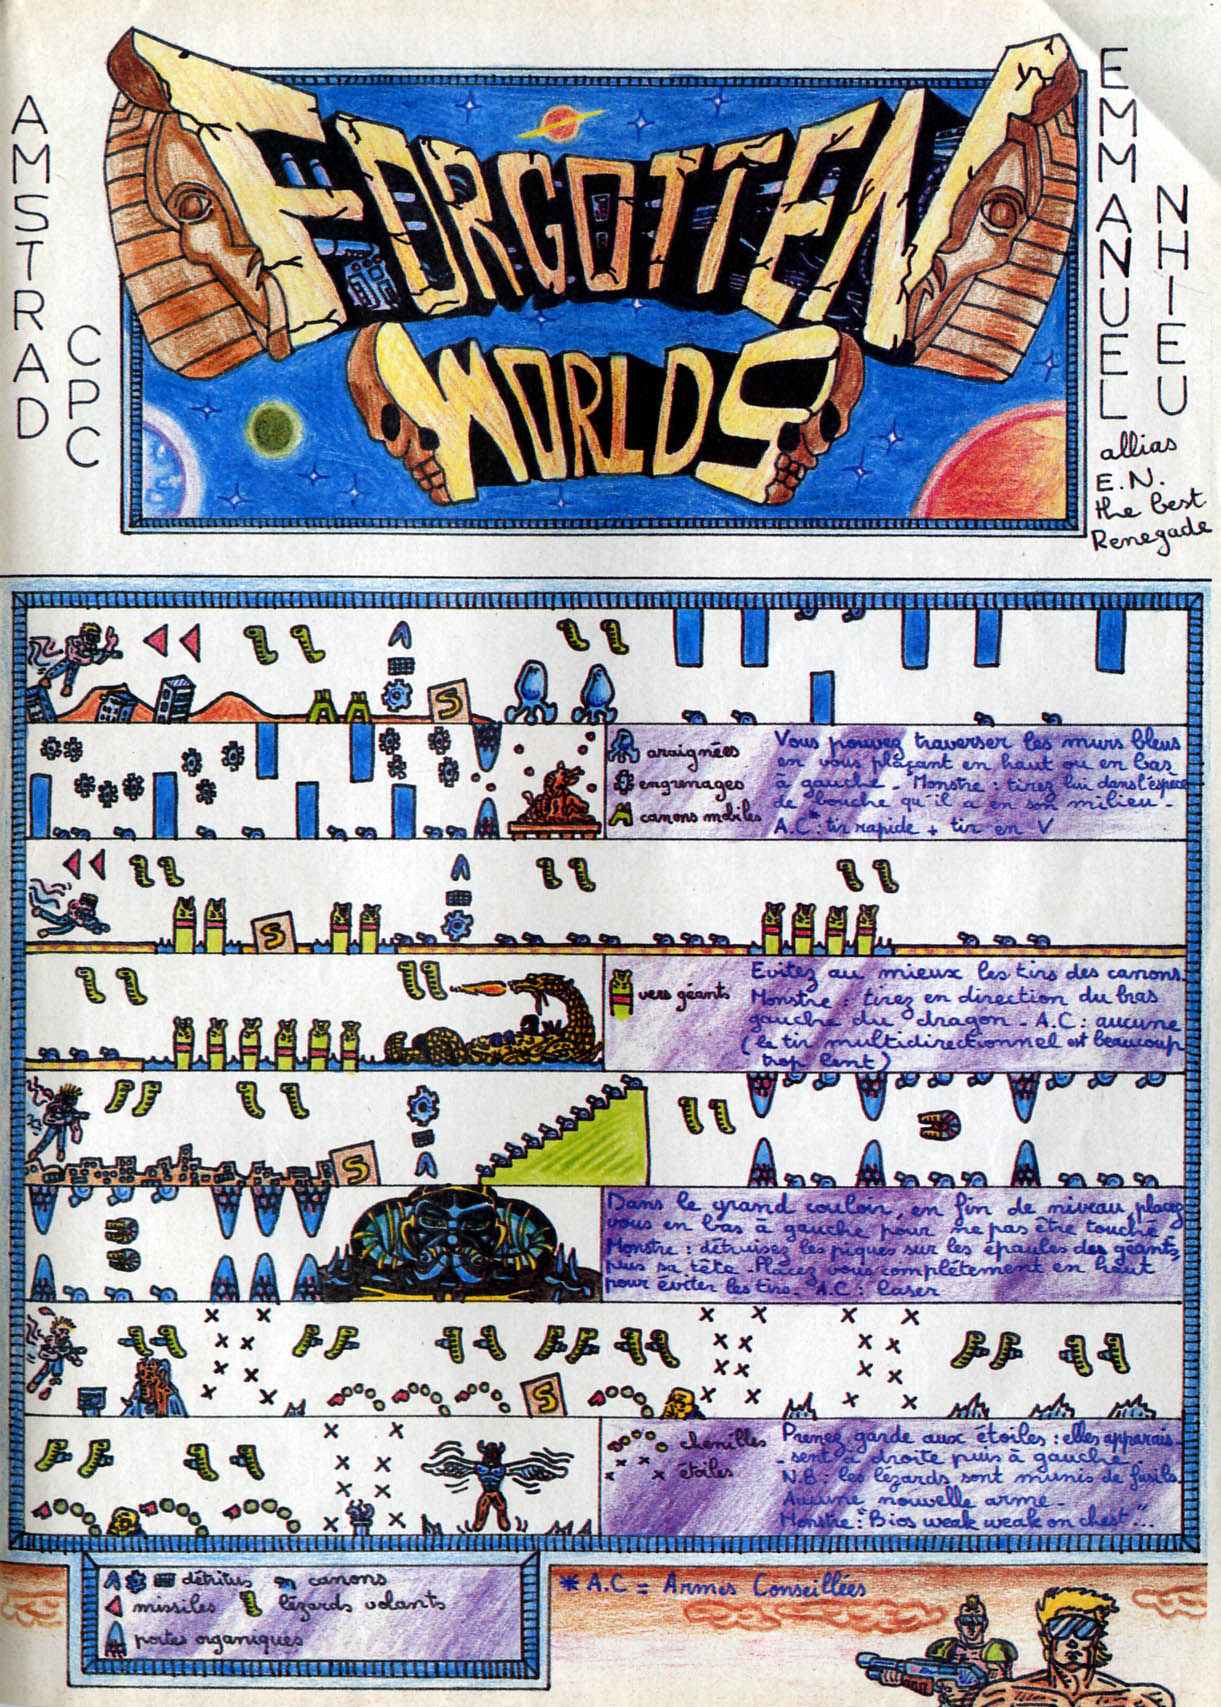 AMSTRAD
CPC
FORGOTTEN
WORLDS
EMMANUEL
NHIEU
allias
E.N.
the best
Renegade
S
araignées
engrenages
canons mobiles
Vous pouvez traverser les murs bleus
en vous plaçant en haut ou en bas
à gauche - Monstre : tirez lui dans l'espece
de bouche qu'il a en son milieu -
A.C* : tir rapide + tir en V
S
vers géants
Evitez au mieux les tirs des canons.
Monstre : tirez en direction du bras
gauche du dragon - A.C : aucune
(le tir multidirectionnel est beaucoup
trop lent)
S
Dans le grand couloir, en fin de niveau, placez
vous en bas à gauche pour ne pas être touché
Monstre : détruisez les piques sur les épaules des géants,
puis sa tête - Placez vous complètement en haut
pour éviter les tirs - A.C : laser
S
chenilles
étoiles
Prenez garde aux étoiles : elles apparais-
- sent à droite puis à gauche -
N.B : les lézards sont munis de fusils.
Aucune nouvelle arme -
Monstre : "Bios weak weak on chest"...
détritus canons
missiles lézards volants
portes organiques
* A.C = Armes Conseillées